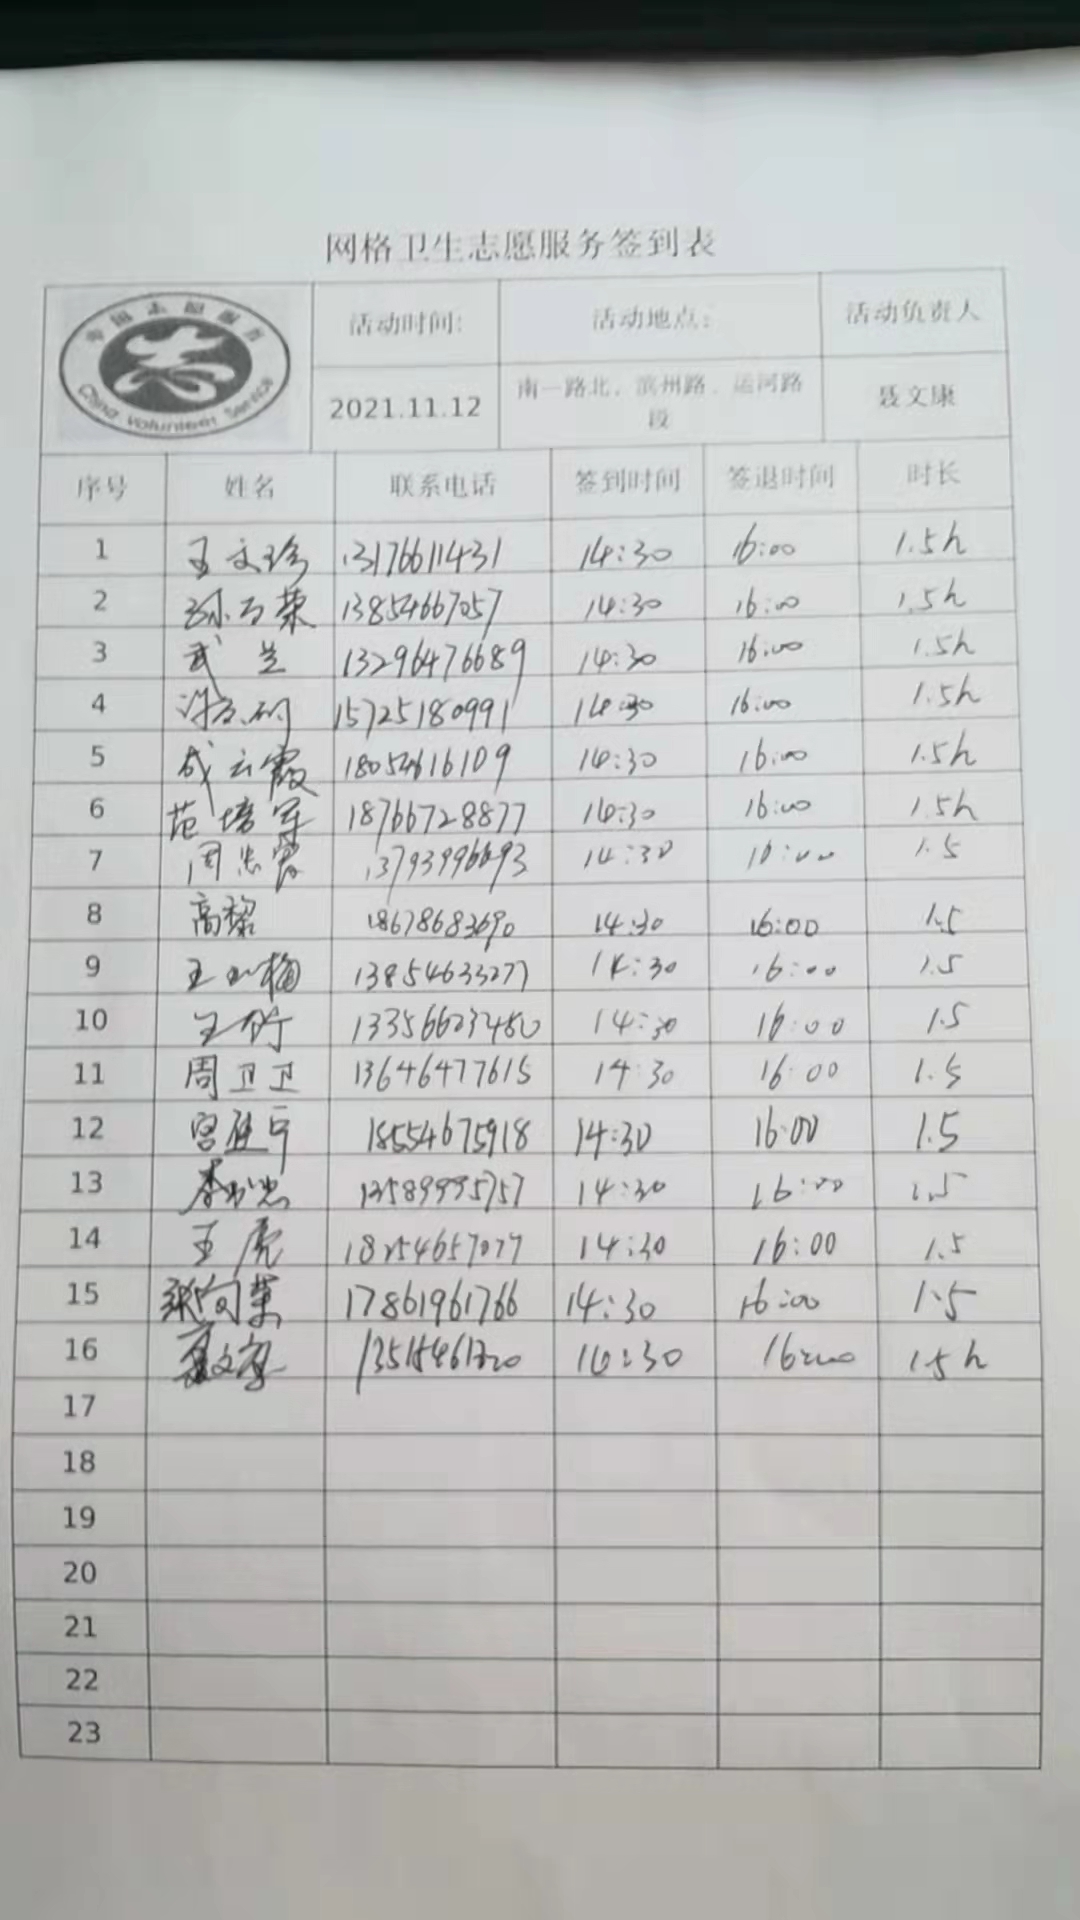 网格卫生志愿服务签到表
中国志愿服务
China Volunteer Service
活动时间: 活动地点: 活动负责人
2021.11.12 南一路北、滨州路、运河路段 聂文康
序号 姓名 联系电话 签到时间 签退时间 时长
1 王文珍 13176611431 14:30 16:00 1.5h
2 13854667057 14:30 16:00 1.5h
3 武兰 13296476689 14:30 16:00 1.5h
4 15725180991 14:30 16:00 1.5h
5 成云霞 18054616109 14:30 16:00 1.5h
6 范培军 18766728877 14:30 16:00 1.5h
7 13793996693 14:30 16:00 1.5
8 高黎 18678683690 14:30 16:00 1.5
9 13854633277 14:30 16:00 1.5
10 王竹 13356623480 14:30 16:00 1.5
11 周卫卫 13646477615 14:30 16:00 1.5
12 18554675918 14:30 16:00 1.5
13 13589995757 14:30 16:00 1.5
14 王虎 18254657077 14:30 16:00 1.5
15 17861961766 14:30 16:00 1.5
16 14:30 16:00 1.5h
17
18
19
20
21
22
23